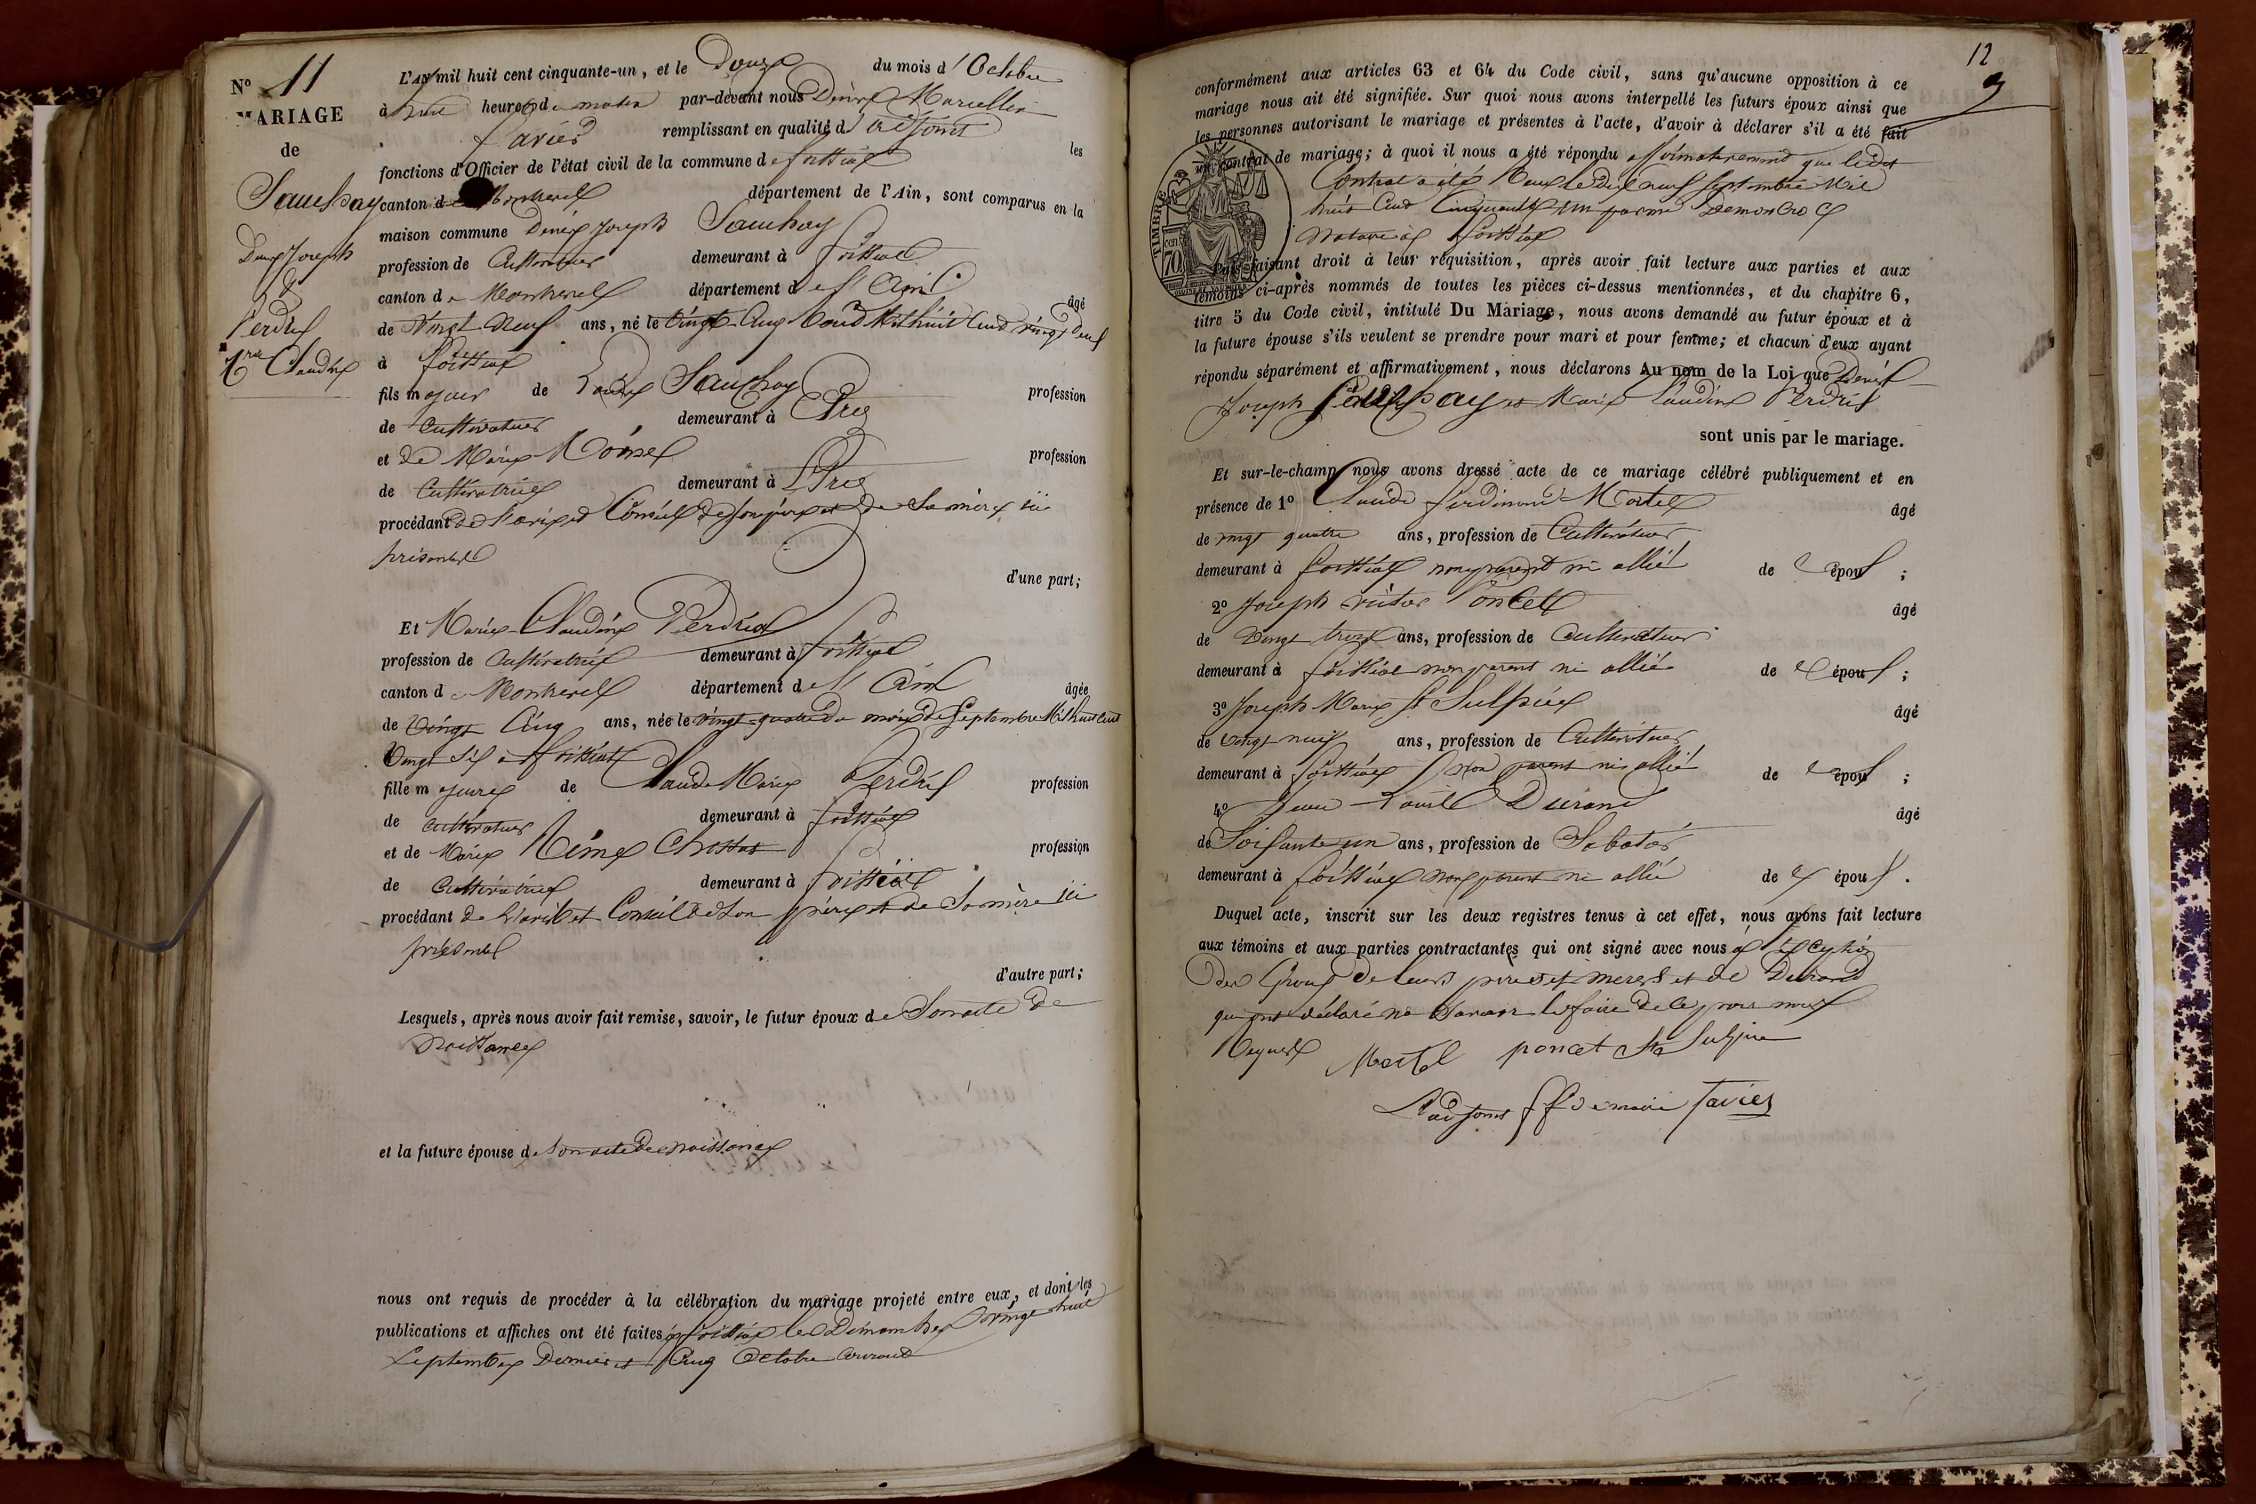 N° 11
MARIAGE
de
Sauchay
Denis Joseph
&
Perdrix
Mie Claudine
L'AN mil huit cent cinquante-un, et le Douze du mois d'Octobre
à huit heures du matin par-devant nous Denis Marcellin
Favier remplissant en qualité d'adjoint les
fonctions d'Officier de l'état civil de la commune de foissiat
canton de Montrevel département de l'Ain, sont comparus en la
maison commune Denis Joseph Sauchay
profession de Cultivateur demeurant à foissiat
canton de Montrevel département de l'Ain âgé
de Vingt-Neuf ans, né le Vingt-Cinq Aout Mil huit Cent vingt Deux
à foissiat
fils majeur de Sauchay profession
de Cultivateur demeurant à
et de Marie profession
de Cultivatrice demeurant à
procédant de l'avis et Conseil de son père et de sa mère ici
présents
d'une part;
Et Marie-Claudine Perdrix
profession de Cultivatrice demeurant à foissiat
canton de Montrevel département de l'Ain âgée
de Vingt Cinq ans, née le vingt-quatre du mois de Septembre Mil huit Cent
Vingt Six à foissiat
fille majeure de Claude Marie Perdrix profession
de cultivateur demeurant à foissiat
et de Marie profession
de Cultivatrice demeurant à foissiat
procédant de l'avis et Conseil de son père et de sa mère ici
présents
d'autre part;
Lesquels, après nous avoir fait remise, savoir, le futur époux de Son acte de
Naissance
et la future épouse de Son acte de naissance
nous ont requis de procéder à la célébration du mariage projeté entre eux, et dont les
publications et affiches ont été faites à foissiat les Dimanches vingt huit
Septembre Dernier et Cinq Octobre Courant
12
conformément aux articles 63 et 64 du Code civil, sans qu'aucune opposition à ce
mariage nous ait été signifiée. Sur quoi nous avons interpellé les futurs époux ainsi que
les personnes autorisant le mariage et présentes à l'acte, d'avoir à déclarer s'il a été fait
un contrat de mariage; à quoi il nous a été répondu affirmativement que ledit
Contrat a été Reçu le Dix neuf Septembre Mil
huit Cent Cinquante un par Me
Notaire à foissiat
TIMBRE
70
Puis faisant droit à leur réquisition, après avoir fait lecture aux parties et aux
témoins ci-après nommés de toutes les pièces ci-dessus mentionnées, et du chapitre 6,
titre 5 du Code civil, intitulé Du Mariage, nous avons demandé au futur époux et à
la future épouse s'ils veulent se prendre pour mari et pour femme; et chacun d'eux ayant
répondu séparément et affirmativement, nous déclarons Au nom de la Loi que Denis
Joseph Sauchay et Marie Claudine Perdrix
sont unis par le mariage.
Et sur-le-champ nous avons dressé acte de ce mariage célébré publiquement et en
présence de 1° Claude ferdinand Martel âgé
de vingt quatre ans, profession de Cultivateur
demeurant à foissiat non parent ni allié de époux;
2° Joseph victor Poncet âgé
de Vingt treize ans, profession de Cultivateur
demeurant à foissiat non parent ni allié de époux;
3° Joseph Marie St Sulpice âgé
de Vingt neuf ans, profession de Cultivateur
demeurant à foissiat Non parent ni allié de époux;
4° Jean Louis Durand âgé
de Soixante un ans, profession de Sabotier
demeurant à foissiat non parent ni allié de époux.
Duquel acte, inscrit sur les deux registres tenus à cet effet, nous avons fait lecture
aux témoins et aux parties contractantes qui ont signé avec nous à l'exception
des époux de leurs pères et mères et de Durand
qui ont déclaré ne Savoir le faire de ce par nous
Requis Martel poncet St Sulpice
L'adjoint ff de maire favier